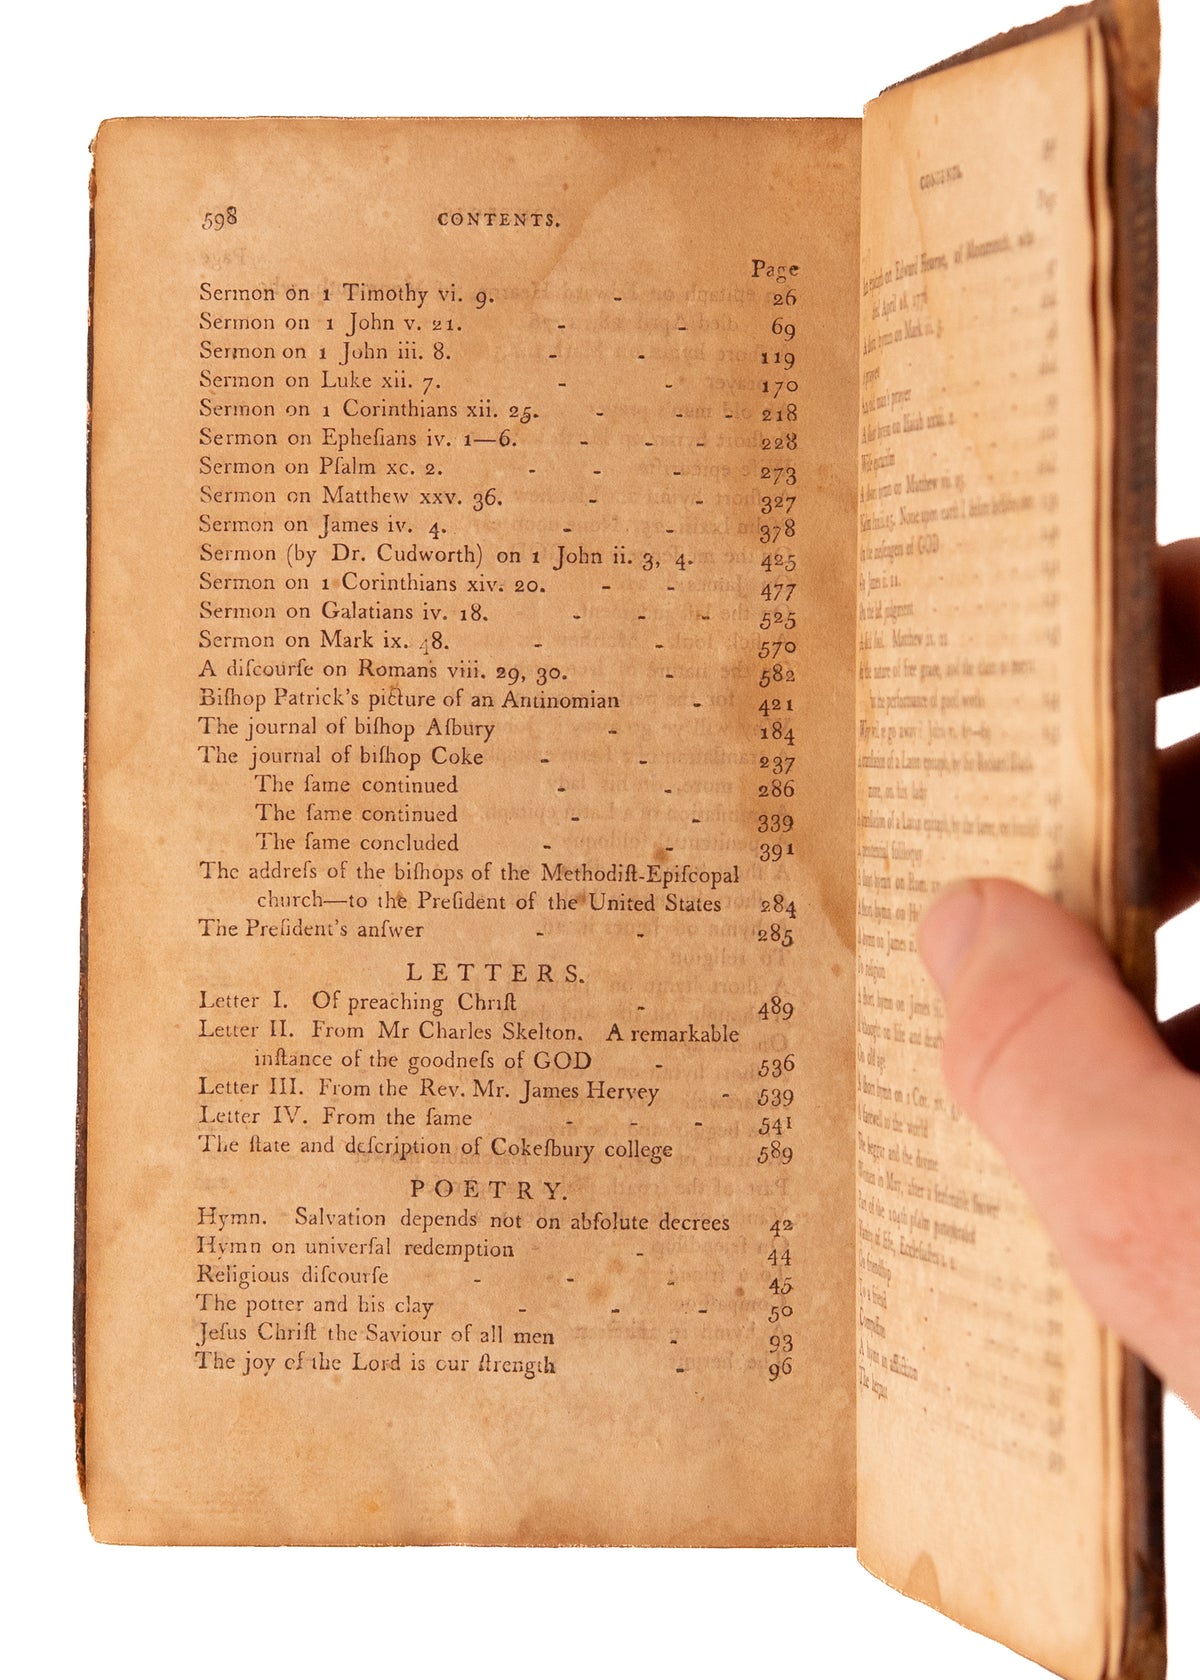 598 CONTENTS.
Page
Sermon on 1 Timothy vi. 9. - 26
Sermon on 1 John v. 21. - - 69
Sermon on 1 John iii. 8. - - 119
Sermon on Luke xii. 7. - - 170
Sermon on 1 Corinthians xii. 25. - - - 218
Sermon on Epheſians iv. 1—6. - - - 228
Sermon on Pſalm xc. 2. - - - 273
Sermon on Matthew xxv. 36. - - 327
Sermon on James iv. 4. - - 378
Sermon (by Dr. Cudworth) on 1 John ii. 3, 4. 425
Sermon on 1 Corinthians xiv. 20. - - 477
Sermon on Galatians iv. 18. - - - 525
Sermon on Mark ix. 48. - - 570
A diſcourſe on Romans viii. 29, 30. - 582
Biſhop Patrick's picture of an Antinomian - 421
The journal of biſhop Aſbury - 184
The journal of biſhop Coke - - 237
The ſame continued - - 286
The ſame continued - - 339
The ſame concluded - - 391
The addreſs of the biſhops of the Methodiſt-Epiſcopal
church—to the Preſident of the United States 284
The Preſident's anſwer - - 285
LETTERS.
Letter I. Of preaching Chriſt - 489
Letter II. From Mr Charles Skelton. A remarkable
inſtance of the goodneſs of GOD - 536
Letter III. From the Rev. Mr. James Hervey - 539
Letter IV. From the ſame - - - 541
The ſtate and deſcription of Cokeſbury college 589
POETRY.
Hymn. Salvation depends not on abſolute decrees 42
Hymn on univerſal redemption - - 44
Religious diſcourſe - - - 45
The potter and his clay - - - 50
Jeſus Chriſt the Saviour of all men - 93
The joy of the Lord is our ſtrength - 96
CONTENTS.
Page
epitaph on Edward Hearne, of Monmouth, who
died April 28, 
A ſhort hymn on Mark 
prayer
An old man's prayer
A ſhort hymn on Iſaiah xxxii. 2.
A ſhort hymn on Matthew
None upon earth I deſire beſides
the meſſengers of GOD
James
the laſt judgment
Matthew
the nature of free grace, and the claim to merit
for the performance of good works
Why will ye go away? John vi. 67—69
A tranſlation of a Latin epitaph, by the
more, on his lady
A tranſlation of a Latin epitaph, by the ſame, on himſelf
A penitential ſoliloquy
A ſhort hymn on Rom.
A ſhort hymn on
A hymn on James
To religion
A ſhort hymn on James
A thought on life and death
On old age
A ſhort hymn on 1 Cor.
A farewell to the world
The beggar and the divine
Written in May, after a
Part of the 104th pſalm paraphraſed
Vanity of life, Eccleſiaſtes 1. 2.
On friendſhip
To a friend
Compaſſion
A hymn in affliction
The